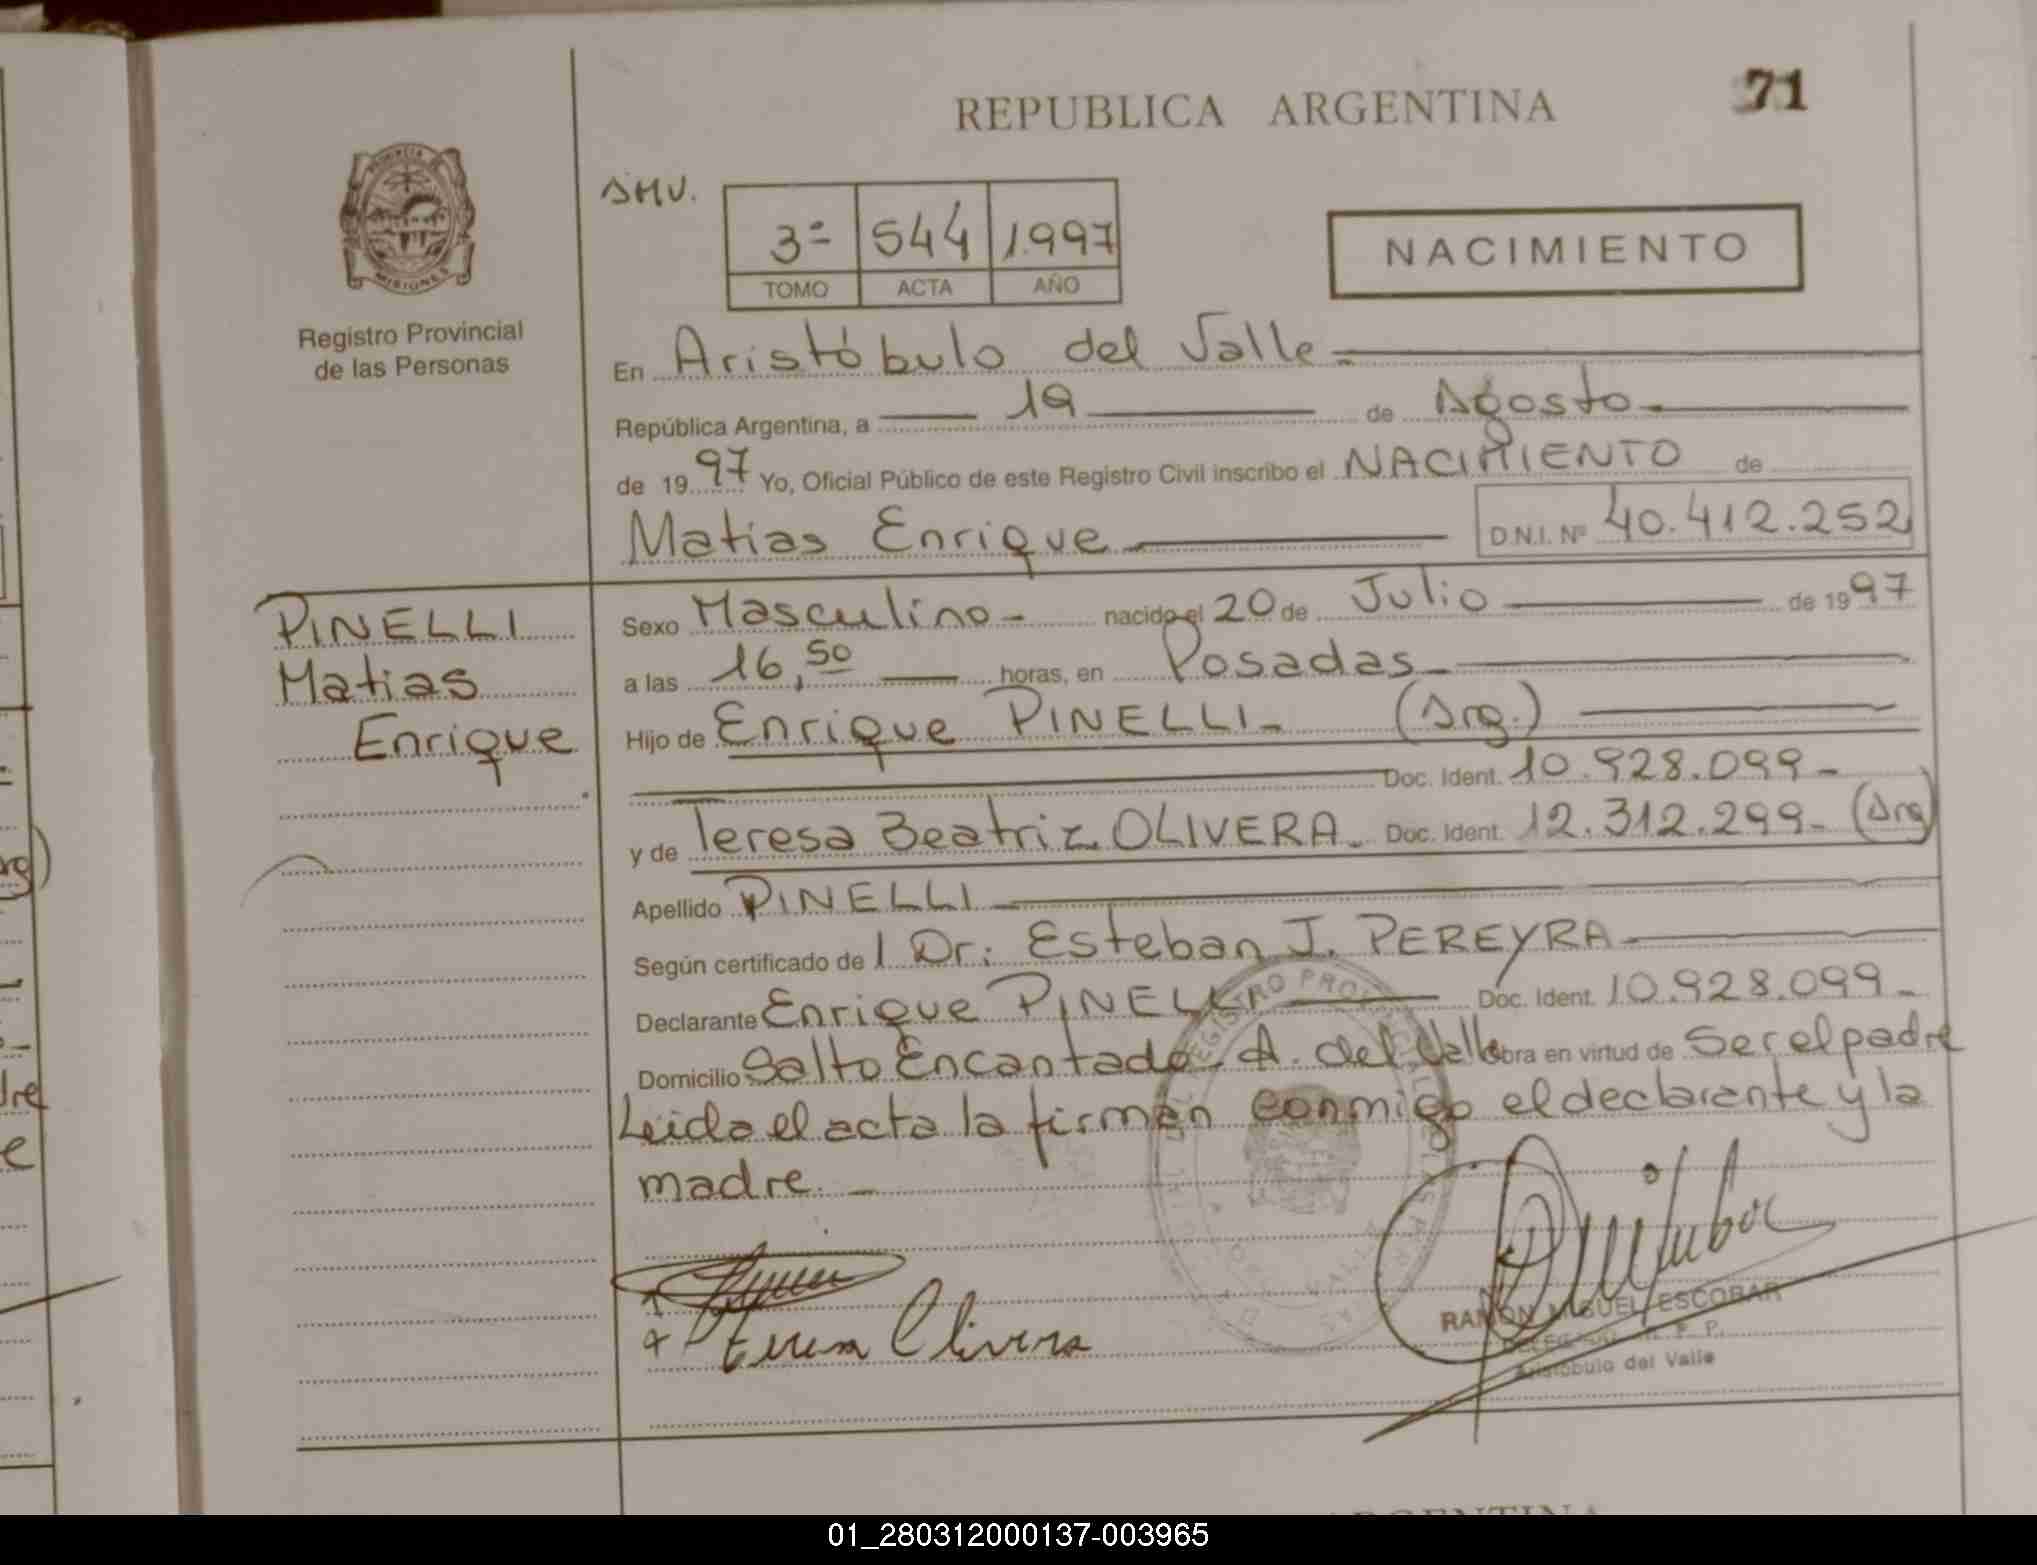 71
REPUBLICA ARGENTINA
PROVINCIA DE
MISIONES
Registro Provincial
de las Personas
3º 544 1.997
TOMO ACTA AÑO
NACIMIENTO
En Aristóbulo del Valle.-
República Argentina, a 19 de Agosto-
de 1997 Yo, Oficial Público de este Registro Civil inscribo el NACIMIENTO de
Matias Enrique D.N.I. Nº 40.412.252
PINELLI
Matias
Enrique
Sexo Masculino - nacido el 20 de Julio de 1997
a las 16,50 horas, en Posadas-
Hijo de Enrique PINELLI- (Arg.)
Doc. Ident. 10.928.099-
y de Teresa Beatriz OLIVERA. Doc. Ident. 12.312.299- (Arg)
Apellido PINELLI
Según certificado de l Dr: Esteban J. PEREYRA-
Declarante Enrique PINELLI Doc. Ident. 10.928.099-
Domicilio Salto Encantado. A. del Valle obra en virtud de ser el padre
Leida el acta la firman conmigo el declarante y la
madre. -
Teresa Olivera
RAMON MIGUEL ESCOBAR
DELEGADO R. P. P.
Aristóbulo del Valle
01_280312000137-003965